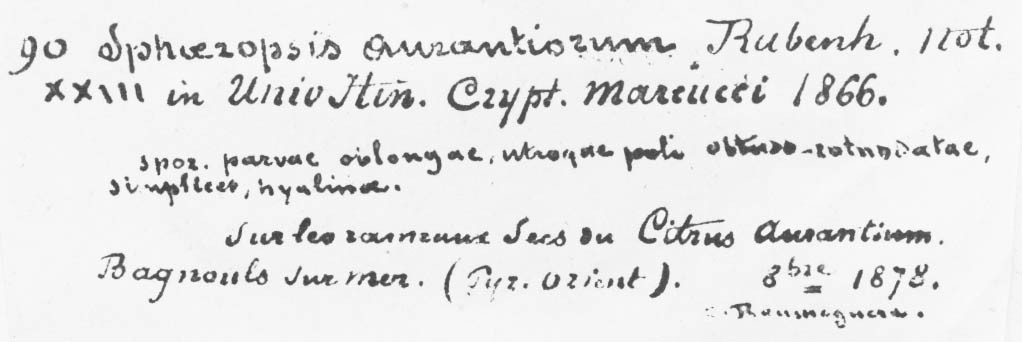 90 Sphæropsis Aurantiorum Rabenh. not.
XXIII in Univ Itin. Crypt. Marcucci 1866.
spor. parvae oblongae, utroque poli obtuso-rotundatae,
simplices, hyalinæ.
Sur les rameaux secs du Citrus Aurantium.
Bagnouls sur mer. (Pyr. Orient). 8bre 1878.
C. Roumeguere.